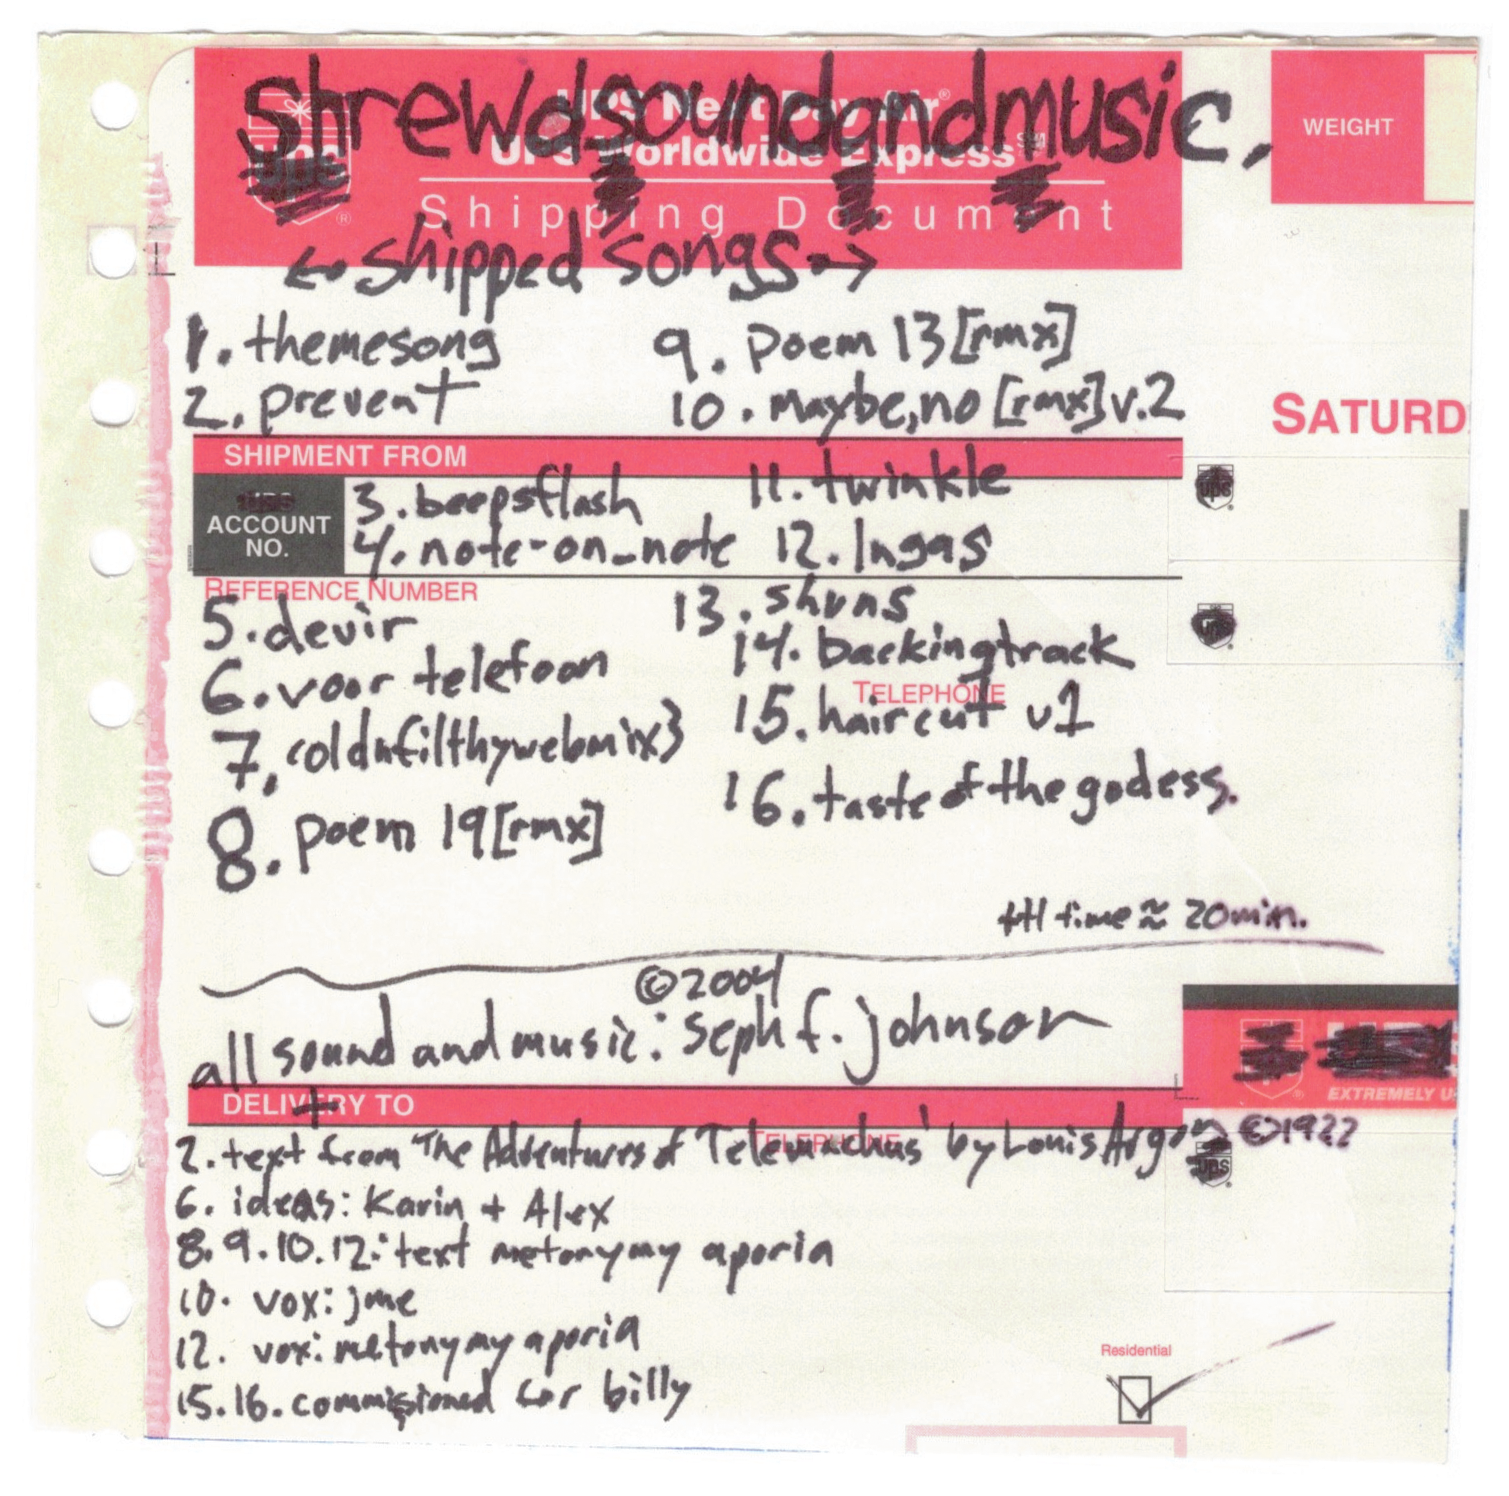 shrewdsoundandmusic.
UPS Next Day Air®
UPS Worldwide Express℠
Shipping Document
WEIGHT
<• shipped songs •>
1. themesong
2. prevent
9. poem 13 [rmx]
10. maybe,no [rmx] v.2
SATURD
SHIPMENT FROM
UPS
ACCOUNT
NO.
3. beepsflash
4. note-on_note
11. twinkle
12. Ingas
REFERENCE NUMBER
5. devir
6. voor telefoon
7. coldnfilthywebmix3
8. poem 19 [rmx]
13. shuns
14. backingtrack
TELEPHONE
15. haircut v1
16. taste of the godess.
ttl time ≈ 20min.
©2004
all sound and music: Seph f. johnson
+
DELIVERY TO
TELEPHONE
2. text from 'The Adventures of Telemachus' by Louis Argon ©1922
6. ideas: Karin + Alex
8. 9. 10. 12: text metonymy aporia
10. vox: jme
12. vox: metonymy aporia
15. 16. commisioned for billy
EXTREMELY U
Residential